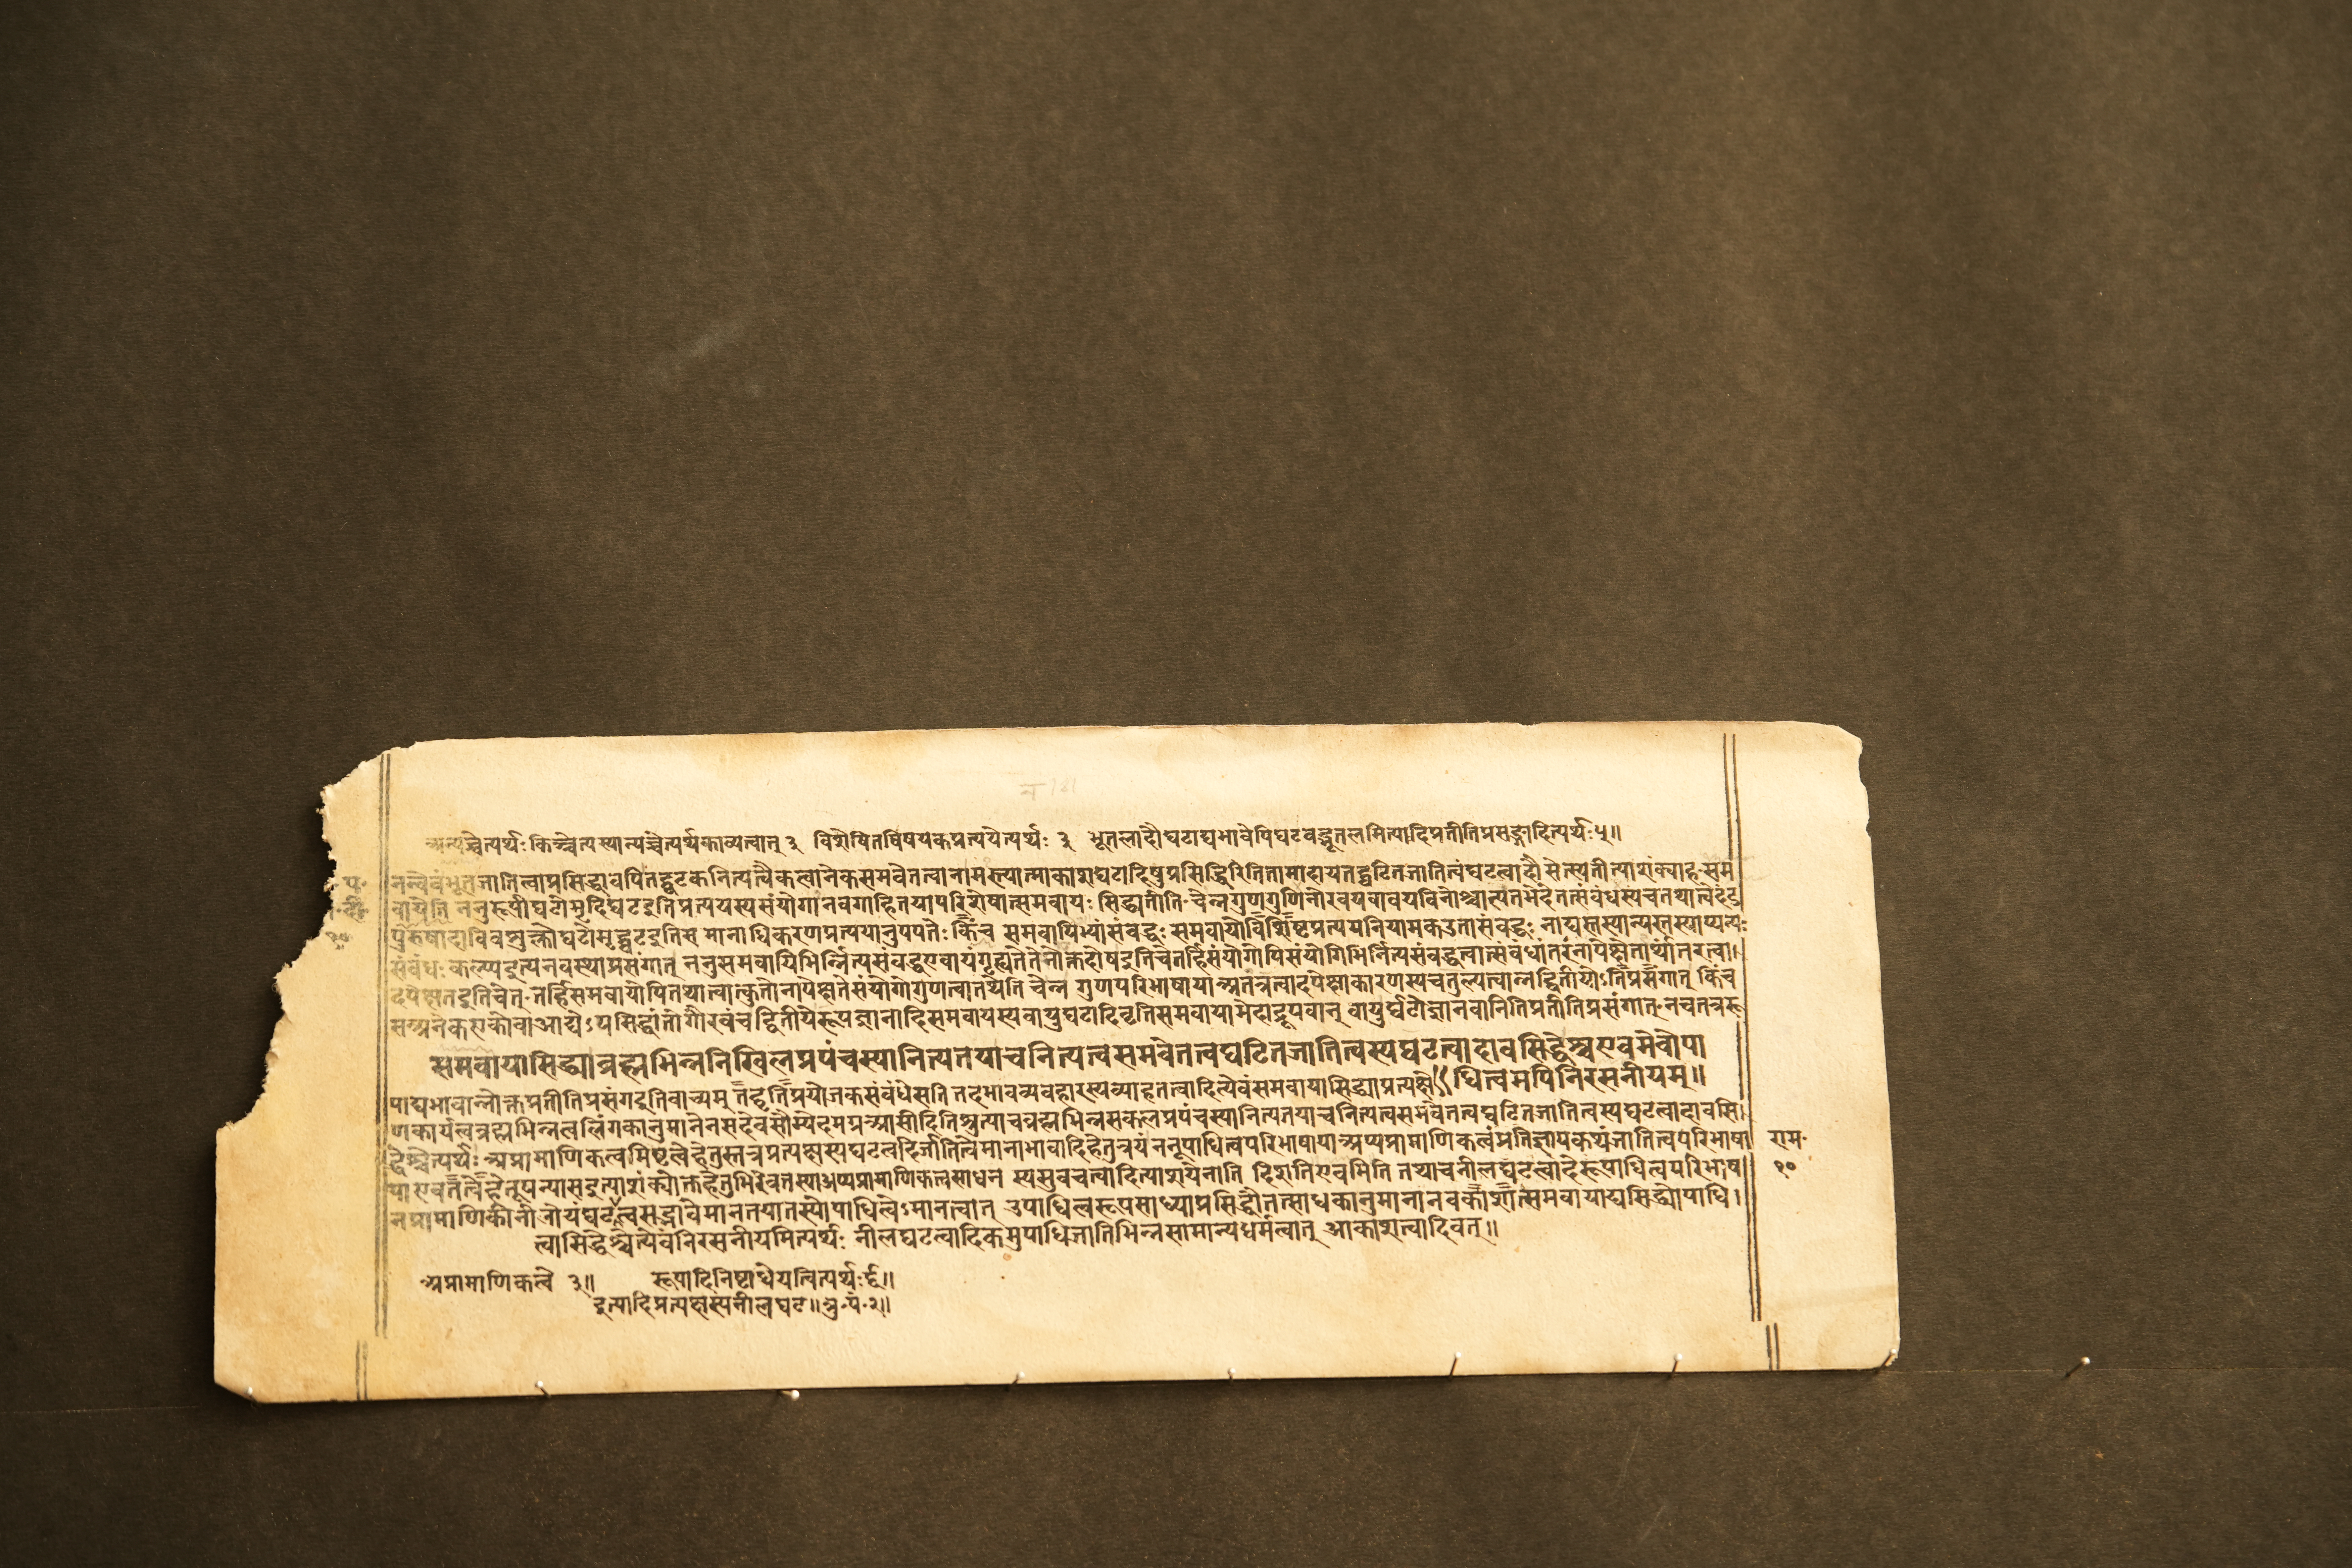 न 181
अन्यच्चेत्यर्थः किञ्चेत्यस्यान्यच्चेत्यर्थकाव्यत्वात् ३ विशेषितविषयकप्रत्ययेत्यर्थः ३ भूतलादौघटाद्यभावेपिघटवद्भूतलमित्यादिप्रतीतिप्रसङ्गादित्यर्थः५॥
नन्वेवंभूतजातित्वाप्रसिद्धावपितद्घटकनित्यत्वैकत्वानेकसमवेतत्वानामस्त्यात्माकाशघटादिषुप्रसिद्धिरितितामादायतद्घटितजातित्वंघटत्वादौसेत्स्यतीत्याशंक्याह-सम
वायेति ननुरूपीघटोमृदिघटइतिप्रत्ययस्यसंयोगानवगाहितयापरिशेषात्समवायः सिद्ध्यतीति-चेन्नगुणगुणिनोरवयवावयविनोश्चात्यंतभेदेतत्संबंधस्यचतथात्वेदंड
पुरुषादाविवशुक्लोघटोमृद्घटइतिस मानाधिकरणप्रत्ययानुपपत्तेः किंच समवायिभ्यांसंबद्धः समवायोविशिष्टप्रत्ययनियामकउतासंबद्धः नाद्यस्तस्यान्यस्तस्याप्यन्यः
संबंधः कल्प्यइत्यनवस्थाप्रसंगात् ननुसमवायिभिर्न्नित्यसंबद्धएवायंगृह्यतेतेनोक्तदोषइतिचेतर्हिसंयोगोपिसंयोगिभिर्नित्यसंबद्धत्वात्संबंधांतरंनापेक्षेतार्थ्यांतरत्वा।
दपेक्षतइतिचेत्-तर्हिसमवायोपितथात्वात्कुतोनापेक्षतेसंयोगोगुणत्वात्तथेति चेन्न गुणपरिभाषायाअतंत्रत्वादपेक्षाकारणस्यचतुल्यत्वान्नद्वितीयोऽतिप्रसंगात् किंच
सअनेकएकोवाआद्येऽपसिद्धांतोगौरवंचद्वितीयेरूपज्ञानादिसमवायस्यवायुघटादिवृत्तिसमवायाभेदाद्रूपवान् वायुर्घटोज्ञानवानितिप्रतीतिप्रसंगात्-नचतत्ररू
समवायासिद्ध्याब्रह्मभिन्ननिखिलप्रपंचस्यानित्यतयाचनित्यत्वसमवेतत्वघटितजातित्वस्यघटत्वादावसिद्धेश्चएवमेवोपा
धित्वमपिनिरसनीयम्॥
पाद्यभावान्नोक्तप्रतीतिप्रसंगइतिवाच्यम् तद्वृत्तिप्रयोजकसंबंधेसति तदभावव्यवहारस्यव्याहतत्वादित्येवंसमवायासिद्ध्याप्रत्यक्षे
णकार्यत्वब्रह्मभिन्नत्वलिंगकानुमानेनसदेवसौम्येदमग्रआसीदितिश्रुत्याचब्रह्मभिन्नसकलप्रपंचस्यानित्यतयाचनित्यत्वसमवेतत्वघटितजातित्वस्यघटत्वादावसि।
द्धेश्चेत्यर्थः अप्रामाणिकत्वमिष्टत्वेहेतुस्तत्रप्रत्यक्षस्यघटत्वादिर्जातित्वेमानाभावादिहेतुत्रयं ननूपाधित्वपरिभाषायाअप्यप्रामाणिकत्वंप्रतिज्ञायकथंजातित्वपरिभाषा
याएवतत्वेहेतूपन्यासइत्याशंक्योक्तहेतुभिरेवतस्याअप्यप्रामाणिकत्वसाधन स्यसुवचत्वादित्याशयेनाति दिशतिएवमिति तथाचनीलघटत्वादेरूपाधित्वपरिभाषा
नप्रामाणिकीनीलोयंघटत्वसद्भावेमानतयातस्योपाधित्वेऽमानत्वात् उपाधित्वरूपसाध्याप्रसिद्धौतत्साधकानुमानानवकाशात्समवायाद्यसिद्ध्योपाधि।
त्वासिद्धेश्चेत्येवंनिरसनीयमित्यर्थः नीलघटत्वादिकमुपाधिजातिभिन्नसामान्यधर्मत्वात् आकाशत्वादिवत्॥
अप्रामाणिकत्वे ३॥ रूपादिनिष्टाधेयत्वेत्यर्थः॥
इत्यादिप्रत्यक्षस्यनीलघट॥
राम-
१०